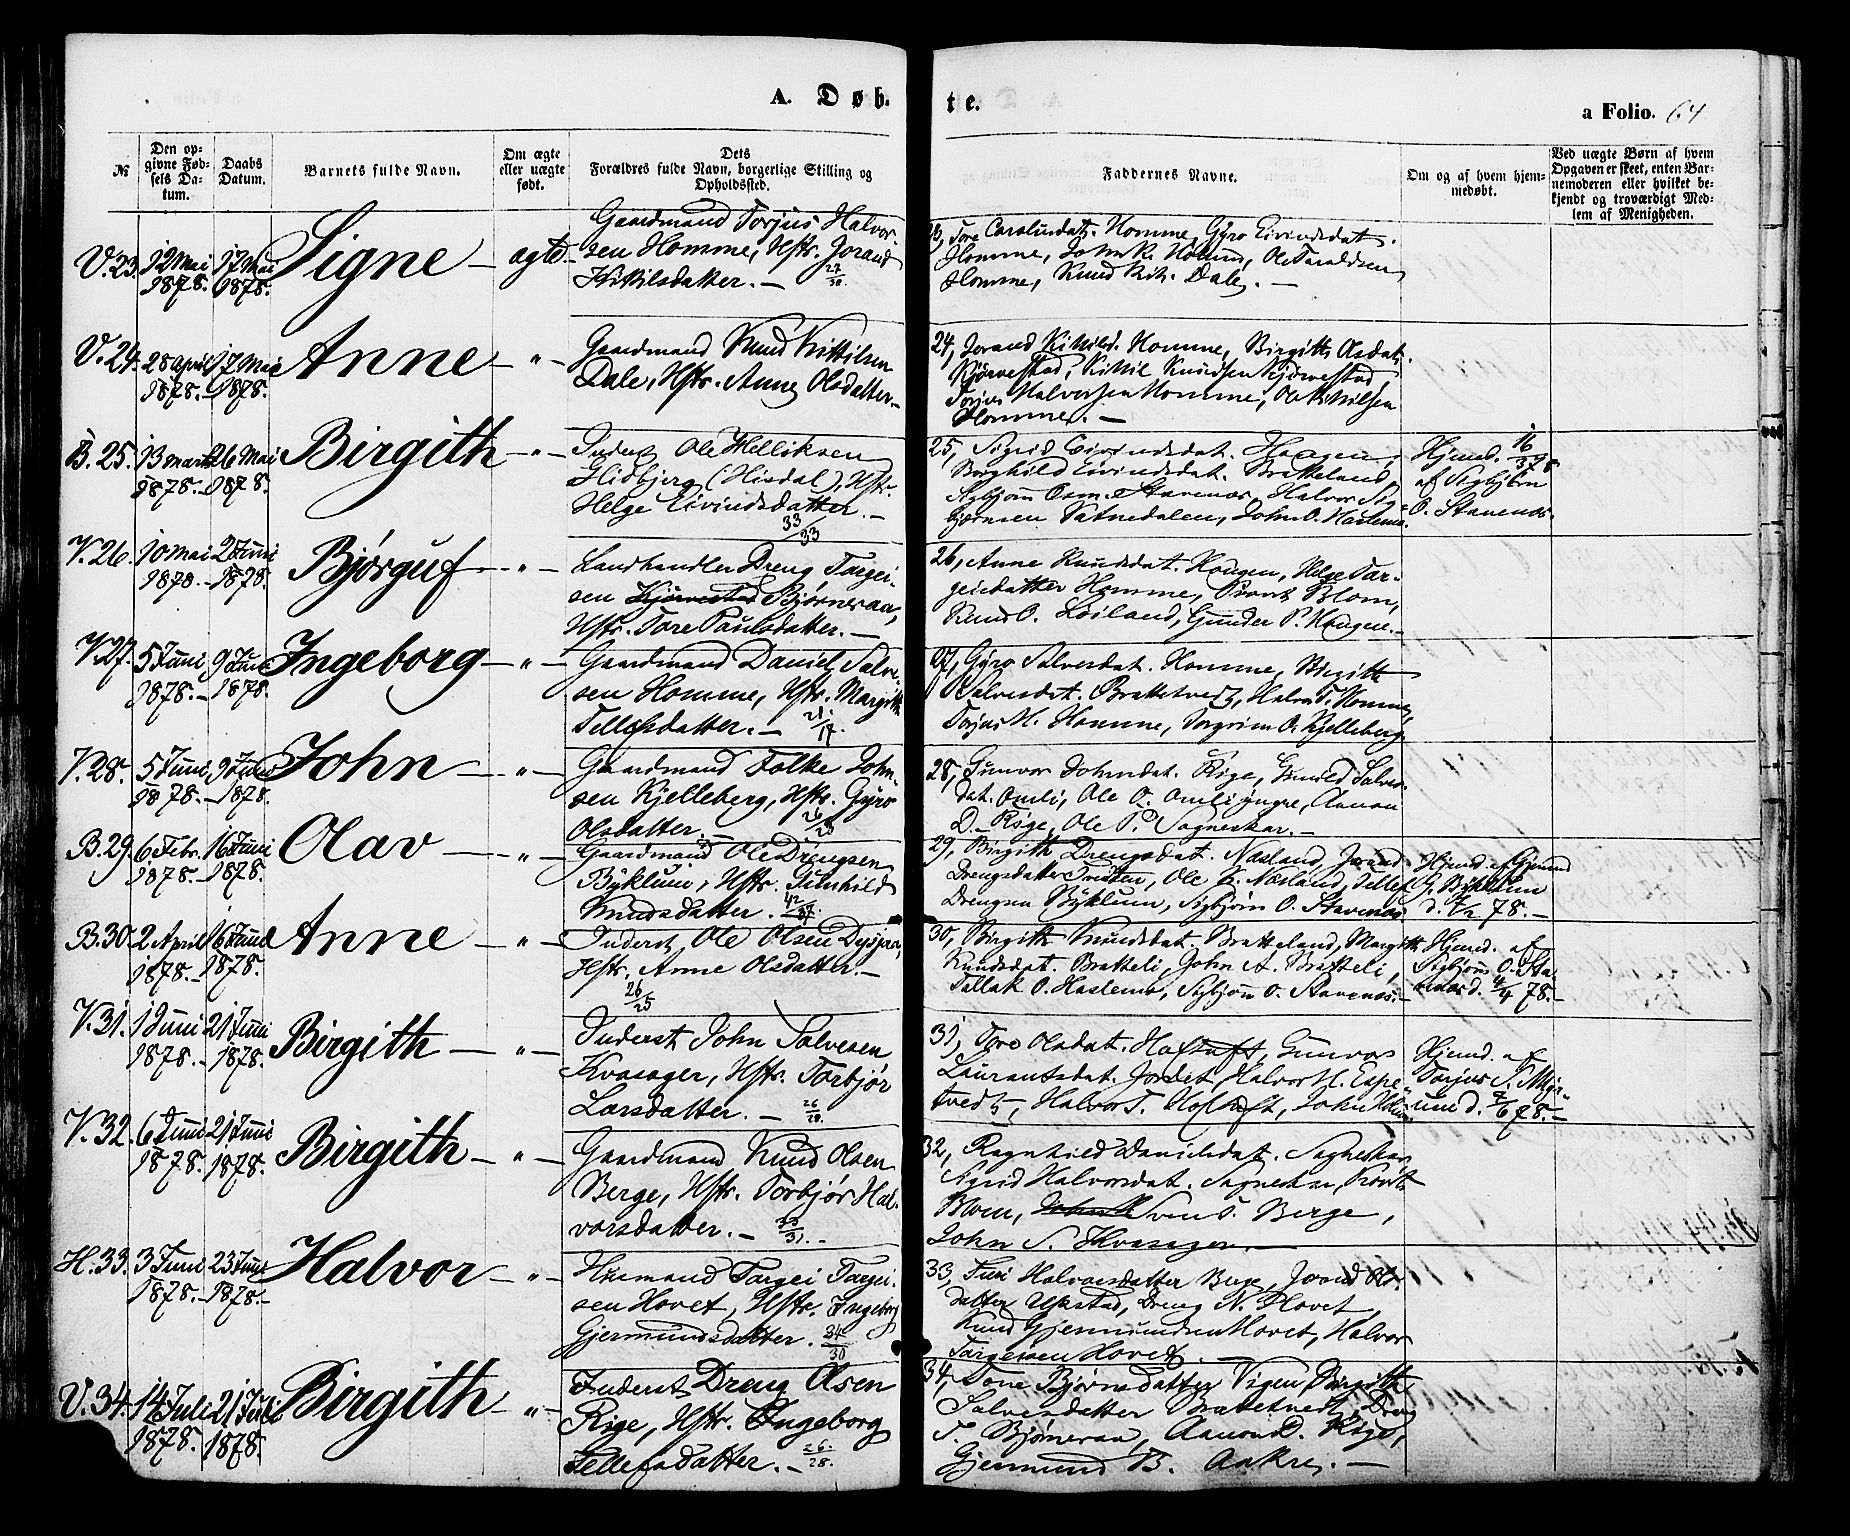 A. Døb-
te.
a Folio. 64
№
Den op-
givne Fød-
sels Da-
tum.
Daabs
Datum.
Barnets fulde Navn.
Om ægte
eller uægte
født.
Dets
Forældres fulde Navn, borgerlige Stilling og
Opholdssted.
Faddernes Navne.
Om og af hvem hjem-
medøbt.
Ved uægte Børn af hvem
Opgaven er skeet, enten Bar-
nemoderen eller hvilket be-
kjendt og troværdigt Med-
lem af Menigheden.
V. 23. 12 Mai 1878. 17 Mai 1878. Signe - ægte -
Gaardmand Torjus Halvor-
sen Homme, Hstr. Jorand
Kittilsdatter. - 27/30
Homme, Gyro Eivindsdat.
Homme, Ole Taraldsen
Homme, Knud Kit. Dale. -
V. 24. 28 April 1878. - 17 Mai 1878. Anne - " -
Gaardmand Knud Kittilsen
Dale, Hstr. Anne Olsdatter -
24, Jorand Kittilsd. Homme, Birgith Olsdat.
Kjørvestad, Kittil Knudsen Kjørvestad,
Torjus Halvorsen Homme, Ole Kittilsen
Homme. -
B. 25. 13 Marts 1878. - 26 Mai 1878. Birgith - " -
Inderst Ole Helliksen
Hisbjerg (Hisdal), Hstr.
Helge Eivindsdatter. -
33/33
25, Sigrid Eivindsdat. Haugen,
Borghild Eivindsdat. Bratteland,
Sigbjørn Osm. Stavenæs, Halvor Sig-
bjørnsen Vatnedalen, John O. Haslemo.
Hjemd. 16/3 78
af Sigbjørn
O. Stavenæs.
V. 26. 10 Mai 1878. - 2 Juni 1878. Bjørguf - " -
Landhandler Dreng Targei-
sen Kjørvestad Bjørneraa,
Hstr. Tore Paulsdatter. -
26, Anne Knudsdat. Haugen, Helge Tar-
geisdatter Homme, Provst Blom,
Knud O. Løiland, Gunder P. Haugen. -
V. 27. 5 Juni 1878. - 9 Juni 1878. Ingeborg - " -
Gaardmand Daniel Salve-
sen Homme, Hstr. Margith
Tellefsdatter. -
27, Gyro Salvesdat. Homme, Birgith
Salvesdat. Brattetvedt, Halvor T. Homme,
Torjus H. Homme, Torgrim O. Kjelleberg.
V. 28. 5 Juni 1878. - 9 Juni 1878. John - " -
Gaardmand Folke John-
sen Kjelleberg, Hstr. Gyro
Olsdatter. -
28, Gunvor Johnsdat. Rige, Gunild Salves-
dat. Omli, Ole O. Omli yngre, Aanon
D. Rige, Ole P. Sagneskar. -
B. 29. 6 Febr. 1878. - 16 Juni 1878. Olav - " -
Gaardmand Ole Drengsen
Byklum, Hstr. Gunhild
Knudsdatter. 42/37.
29, Birgith Drengsdat. Næsland, Jorand
Drengsdatter Tristen, Ole K. Næsland, Tellef
Drengsen Byklum, Sigbjørn O. Stavenæs.
Hjemd. af Gjermund
Byklum
78. -
B. 30. 2 April 1878. - 16 Juni 1878. Anne - " -
Inderst Ole Olsen
Hstr. Anne Olsdatter. -
26/25
30, Birgith Knudsdat. Bratteland, Margith
Knudsdat. Bratteli, John A. Bratteli,
Tallak O. Haslemo, Sigbjørn O. Stavenæs. -
Hjemd. af
Sigbjørn O. Sta-
venæs d. 78. -
V. 31. 1 Juni 1878. - 21 Juni 1878. Birgith - " -
Inderst John Salvesen
Kvasager, Hstr. Torbjør
Larsdatter. - 26/28.
31, Tore Olsdat. Hoftuft, Gunvor
Laurantsdat. Jordet, Halvor H. Espe-
tvedt, Halvor T. Hoftuft, John
Hjemd. af
Torjus S. Myr-
um d. 78. -
V. 32. 6 Juni 1878. 21 Juni 1878. Birgith - " -
Gaardmand Knud Olsen
Berge, Hstr. Torbjør Hal-
vorsdatter. - 33/31. -
32, Ragnhild Danielsdat. Sagneskar,
Sigrid Halvorsdat. Sagneskar, Provst
Blom, Svend S. Berge,
John S. Kvasager. -
H. 33. 3 Juni 1878. - 23 Juni 1878. - Halvor - " -
Huusmand Targei Targei-
sen Hovet, Hstr. Ingeborg
Gjermundsdatter. 34/30
33, Turi Halvorsdatter Berge, Jorand Ols-
datter Upstad, Dreng N. Hovet,
Knud Gjermundsen Hovet, Halvor
Targeisen Hovet. -
V. 34. 14 Juli 1878. 21 Juli 1878. Birgith - " -
Inderst Dreng Olsen
Rige, Hstr. Ingeborg
Tellefsdatter. - 26/28.
34, Tone Bjørnsdatter Vigen, Birgith
Salvesdatter Brattetvedt, Dreng
T. Bjørneraa, Aanon D. Rige,
Gjermund B. Aakre. -